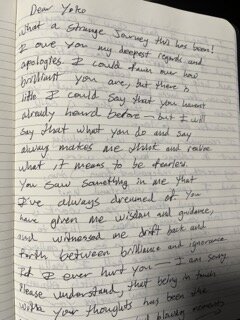 Dear Yoko
What a strange journey this has been!
I owe you my deepest regards and
apologies. I could fawn over how
brilliant you are, but there is
little I could say that you haven't
already heard before - but I will
say that what you do and say
always makes me think and realize
what it means to be fearless.
You saw something in me that
I've always dreamed of. You
have given me wisdom and guidance,
and witnessed me drift back and
forth between brilliance and ignorance.
Did I ever hurt you - I am sorry.
Please understand, that being in touch
with your thoughts has been the
and moments